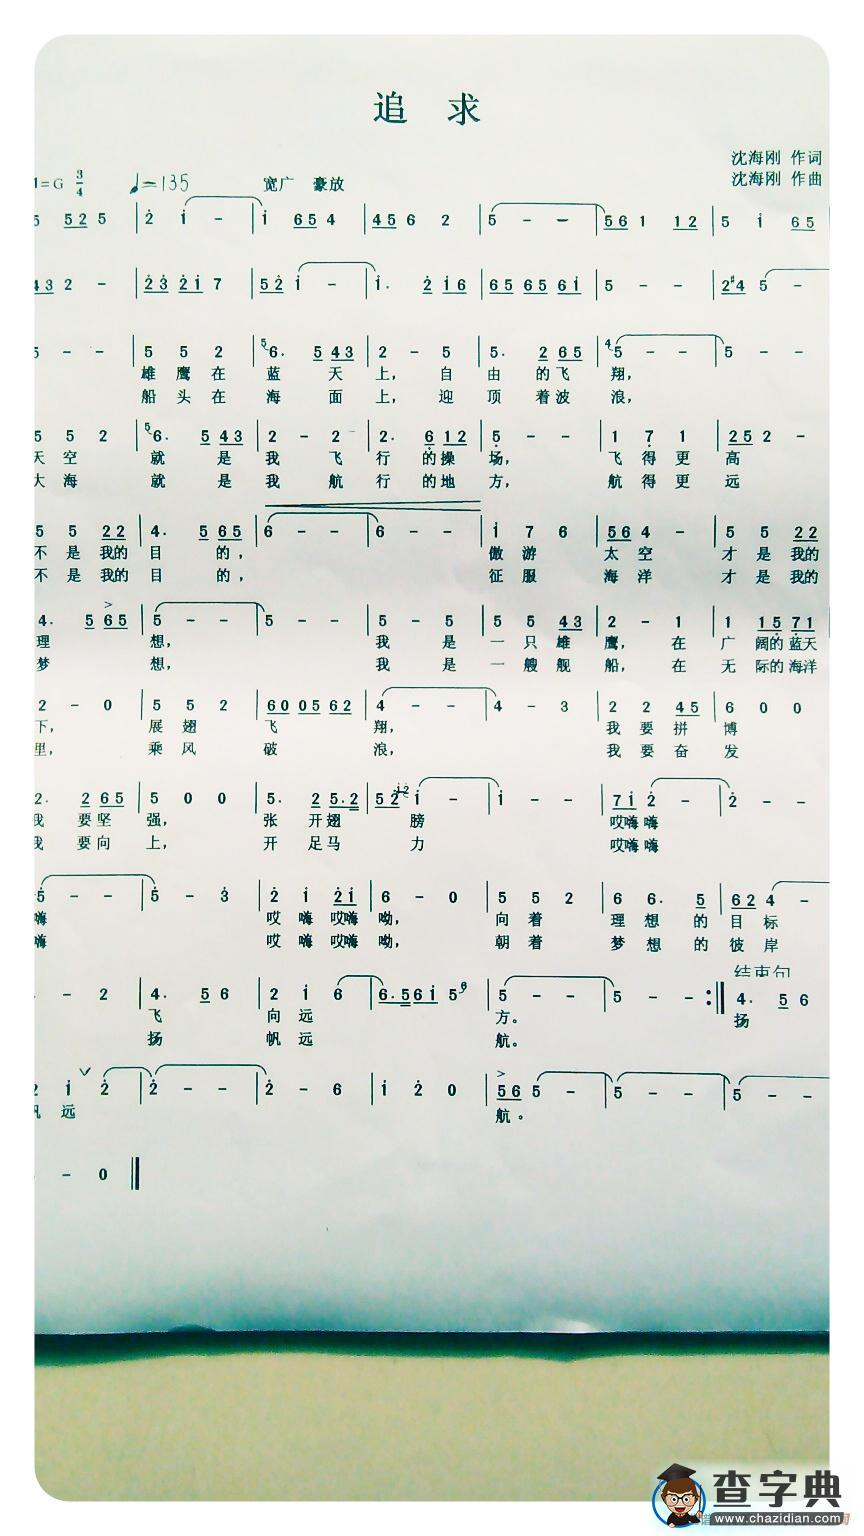 追 求
沈海刚 作词
1=G 3/4 ♩=135 宽广 豪放 沈海刚 作曲
5 5 2 5 | 2 i - | i 6 5 4 | 4 5 6 2 | 5 - - | 5 6 1 1 2 | 5 i 6 5
4 3 2 - | 2 3 2 i 7 | 5 2 i - | i. 2 i 6 | 6 5 6 5 6 i | 5 - - | 2 #4 5 -
5 - - | 5 5 2 | 5 6. 5 4 3 | 2 - 5 | 5. 2 6 5 | 4 5 - - | 5 - -
雄 鹰 在 蓝 天 上， 自 由 的 飞 翔，
船 头 在 海 面 上， 迎 顶 着 波 浪，
5 5 2 | 5 6. 5 4 3 | 2 - 2 | 2. 6 1 2 | 5 - - | 1 7 1 | 2 5 2 -
天 空 就 是 我 飞 行 的 操 场， 飞 得 更 高
大 海 就 是 我 航 行 的 地 方， 航 得 更 远
5 5 2 2 | 4. 5 6 5 | 6 - - | 6 - - | i 7 6 | 5 6 4 - | 5 5 2 2
不 是 我的 目 的， 傲 游 太 空 才 是 我的
不 是 我的 目 的， 征 服 海 洋 才 是 我的
4. 5 6 5 | 5 - - | 5 - - | 5 - 5 | 5 5 4 3 | 2 - 1 | 1 1 5 7 1
理 想， 我 是 一 只 雄 鹰， 在 广 阔的 蓝天
梦 想， 我 是 一 艘 舰 船， 在 无 际的 海洋
2 - 0 | 5 5 2 | 6 0 0 5 6 2 | 4 - - | 4 - 3 | 2 2 4 5 | 6 0 0
下， 展 翅 飞 翔， 我 要 拼 博
里， 乘 风 破 浪， 我 要 奋 发
2. 2 6 5 | 5 0 0 | 5. 2 5. 2 | 5 2 i 2 i - | i - - | 7 i 2 - | 2 - -
我 要 坚 强， 张 开 翅 膀 哎嗨 嗨
我 要 向 上， 开 足 马 力 哎嗨 嗨
5 - - | 5 - 3 | 2 i 2 i | 6 - 0 | 5 5 2 | 6 6. 5 | 6 2 4 -
嗨 哎 嗨 哎嗨 呦， 向 着 理 想 的 目 标
嗨 哎 嗨 哎嗨 呦， 朝 着 梦 想 的 彼 岸
结束句
- 2 | 4. 5 6 | 2 i 6 | 6. 5 6 i 5 6 | 5 - - | 5 - - :|| 4. 5 6
飞 向 远 方。 扬
扬 帆 远 航。
2 i 2 | 2 - - | 2 - 6 | i 2 0 | 5 6 5 - | 5 - - | 5 - -
帆 远 航。
- 0 ||
查字典
www.chazidian.com